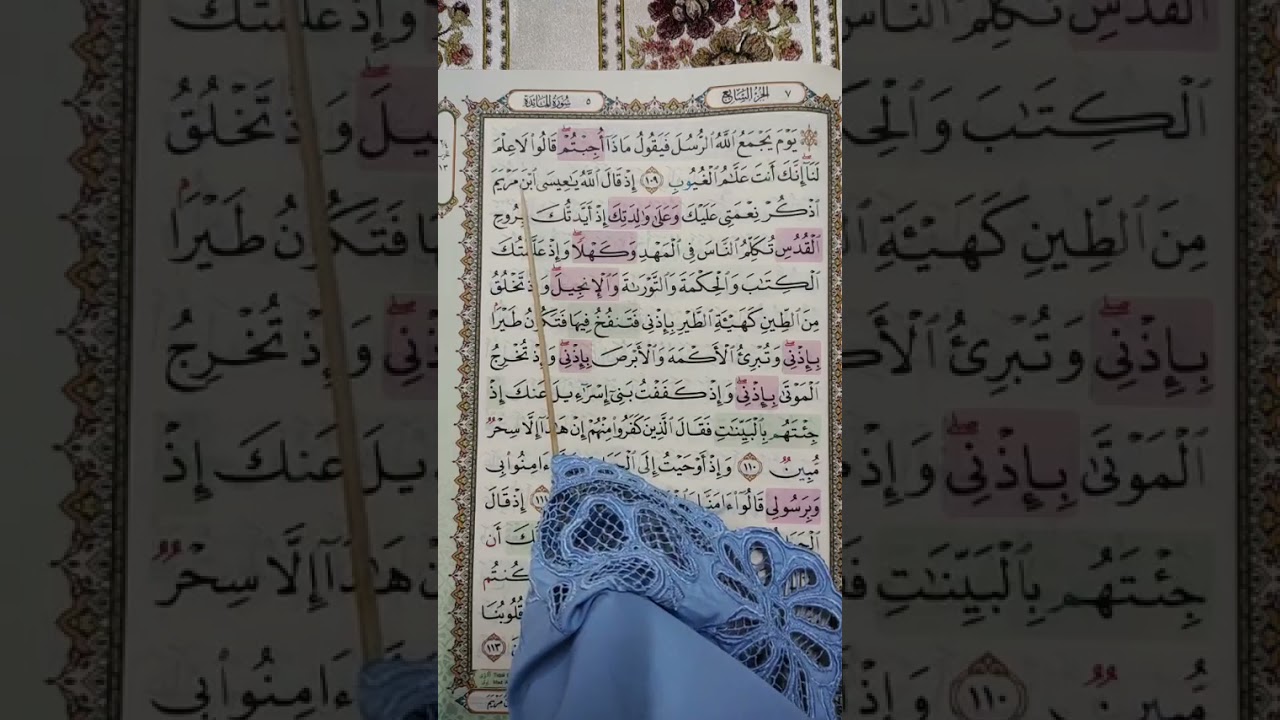 ٧ الجزء السابع
سورة المائدة ٥
يَوْمَ يَجْمَعُ ٱللَّهُ ٱلرُّسُلَ فَيَقُولُ مَاذَآ أُجِبْتُمْ ۖ قَالُوا۟ لَا عِلْمَ
لَنَآ ۖ إِنَّكَ أَنتَ عَلَّـٰمُ ٱلْغُيُوبِ ١٠٩ إِذْ قَالَ ٱللَّهُ يَـٰعِيسَى ٱبْنَ مَرْيَمَ
ٱذْكُرْ نِعْمَتِى عَلَيْكَ وَعَلَىٰ وَٰلِدَتِكَ إِذْ أَيَّدتُّكَ بِرُوحِ
ٱلْقُدُسِ تُكَلِّمُ ٱلنَّاسَ فِى ٱلْمَهْدِ وَكَهْلًا ۖ وَإِذْ عَلَّمْتُكَ
ٱلْكِتَـٰبَ وَٱلْحِكْمَةَ وَٱلتَّوْرَىٰةَ وَٱلْإِنجِيلَ ۖ وَإِذْ تَخْلُقُ
مِنَ ٱلطِّينِ كَهَيْـَٔةِ ٱلطَّيْرِ بِإِذْنِى فَتَنفُخُ فِيهَا فَتَكُونُ طَيْرًۢا
بِإِذْنِى ۖ وَتُبْرِئُ ٱلْأَكْمَهَ وَٱلْأَبْرَصَ بِإِذْنِى ۖ وَإِذْ تُخْرِجُ
ٱلْمَوْتَىٰ بِإِذْنِى ۖ وَإِذْ كَفَفْتُ بَنِىٓ إِسْرَٰٓءِيلَ عَنكَ إِذْ
جِئْتَهُم بِٱلْبَيِّنَـٰتِ فَقَالَ ٱلَّذِينَ كَفَرُوا۟ مِنْهُمْ إِنْ هَـٰذَآ إِلَّا سِحْرٌ
مُّبِينٌ ١١٠ وَإِذْ أَوْحَيْتُ إِلَى ءَامِنُوا۟ بِى
وَبِرَسُولِى قَالُوٓا۟ ءَامَنَّا إِذْ قَالَ
أَن
كُنتُم
قُلُوبُنَا
١١٣